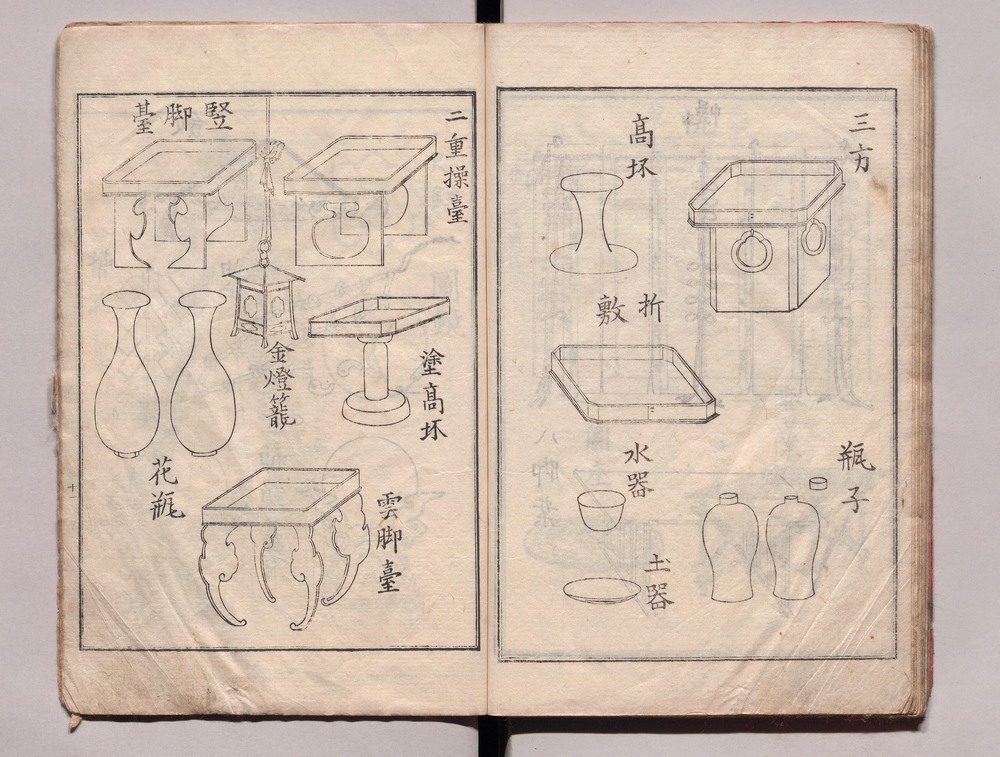 三方
髙坏
折敷
瓶子
水器
圡器
二重操臺
豎脚臺
金燈籠
塗髙坏
花瓶
雲脚臺